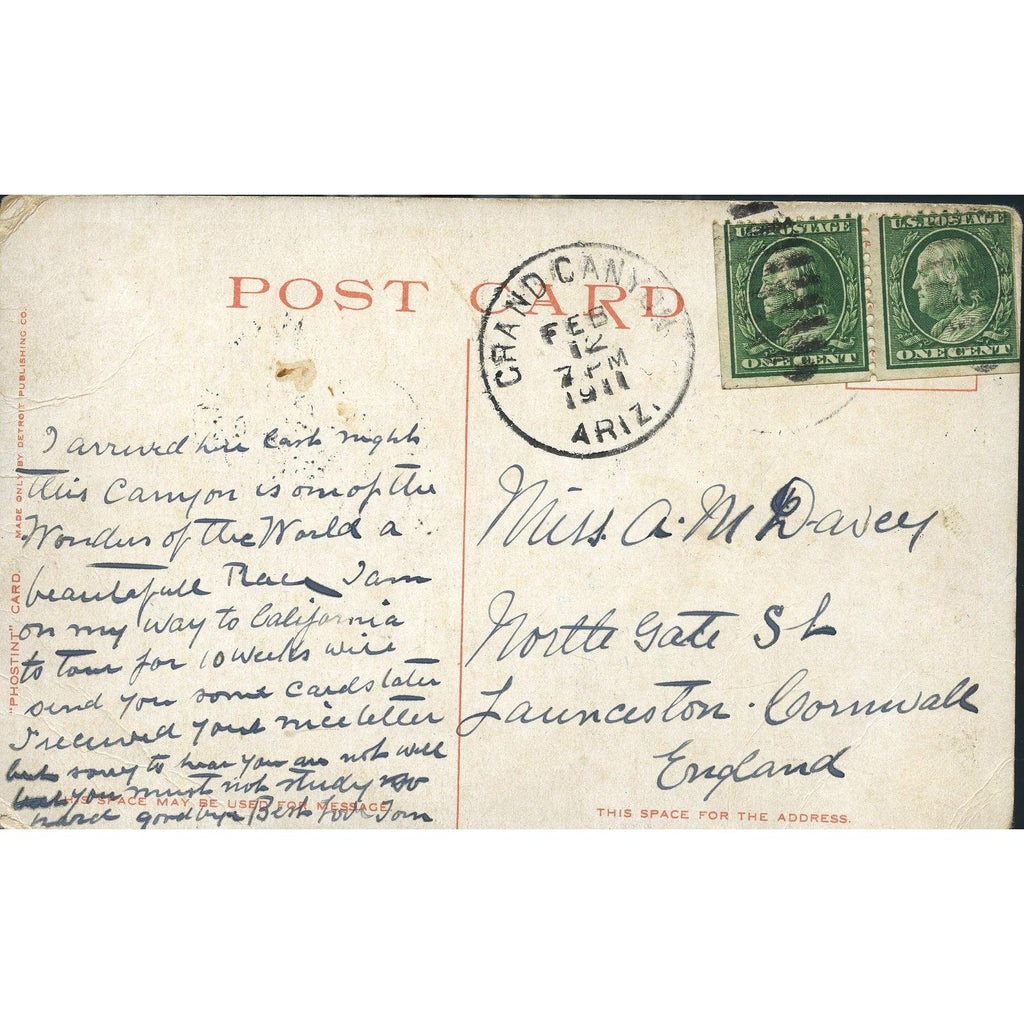 POST CARD
GRAND CANYON
FEB
12
7 PM
1911
ARIZ.
U.S. POSTAGE
ONE CENT
U.S. POSTAGE
ONE CENT
"PHOSTINT" CARD. MADE ONLY BY DETROIT PUBLISHING CO.
I arrived here last night
this Canyon is one of the
Wonders of the World a
beautifull Place I am
on my way to California
to tour for 10 weeks will
send you some cards later
I received your nice letter
but sorry to hear you are not well
but you must not study so
hard goodbye Best Love Tom
THIS SPACE MAY BE USED FOR MESSAGE
Miss. A. M Davey
North Gate St
Launceston. Cornwall
England
THIS SPACE FOR THE ADDRESS.